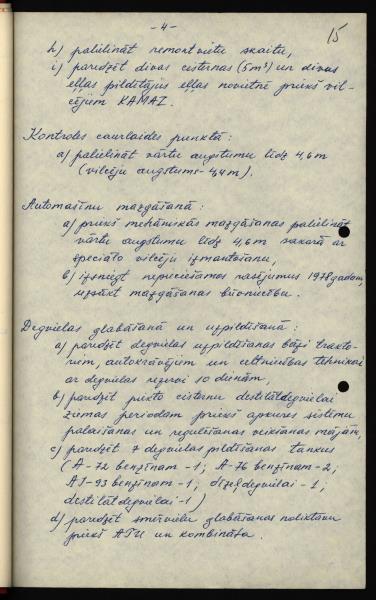 -4-
15
h) palielināt remontvietu skaitu,
i) paredzēt divas cisternas (5m³) un divus
eļļas pildītājus eļļas novietnē priekš vil-
cējiem KAMAZ.
Kontroles caurlaides punktā:
a) palielināt vārtu augstumu līdz 4,6m
(vilcēju augstums - 4,4m).
Automašīnu mazgāšanā:
a) priekš mehāniskās mazgāšanas palielināt
vārtu augstumu līdz 4,6m sakarā ar
speciālo vilcēju izmantošanu,
b) izsniegt nepieciešamos rasējumus 1978 gadam,
uzsākt mazgāšanas būvniecību.
Degvielas glabāšanā un uzpildīšanā:
a) paredzēt degvielas uzpildīšanas bāzi trakto-
riem, autokrāvējiem un celtniecības tehnikai
ar degvielas rezervi 10 dienām,
b) paredzēt piekto cisternu destilātdegvielai
ziemas periodam priekš apkures sistēmu
palaišanas un regulēšanas veikšanas mājām,
c) paredzēt 7 degvielas pildīšanas tankus
(A-72 benzīnam - 1; A-76 benzīnam - 2;
AI-93 benzīnam - 1; dīzeļdegvielai - 1;
destilātdegvielai - 1)
d) paredzēt smērvielu glabāšanas noliktavu
priekš ATU un kombināta.